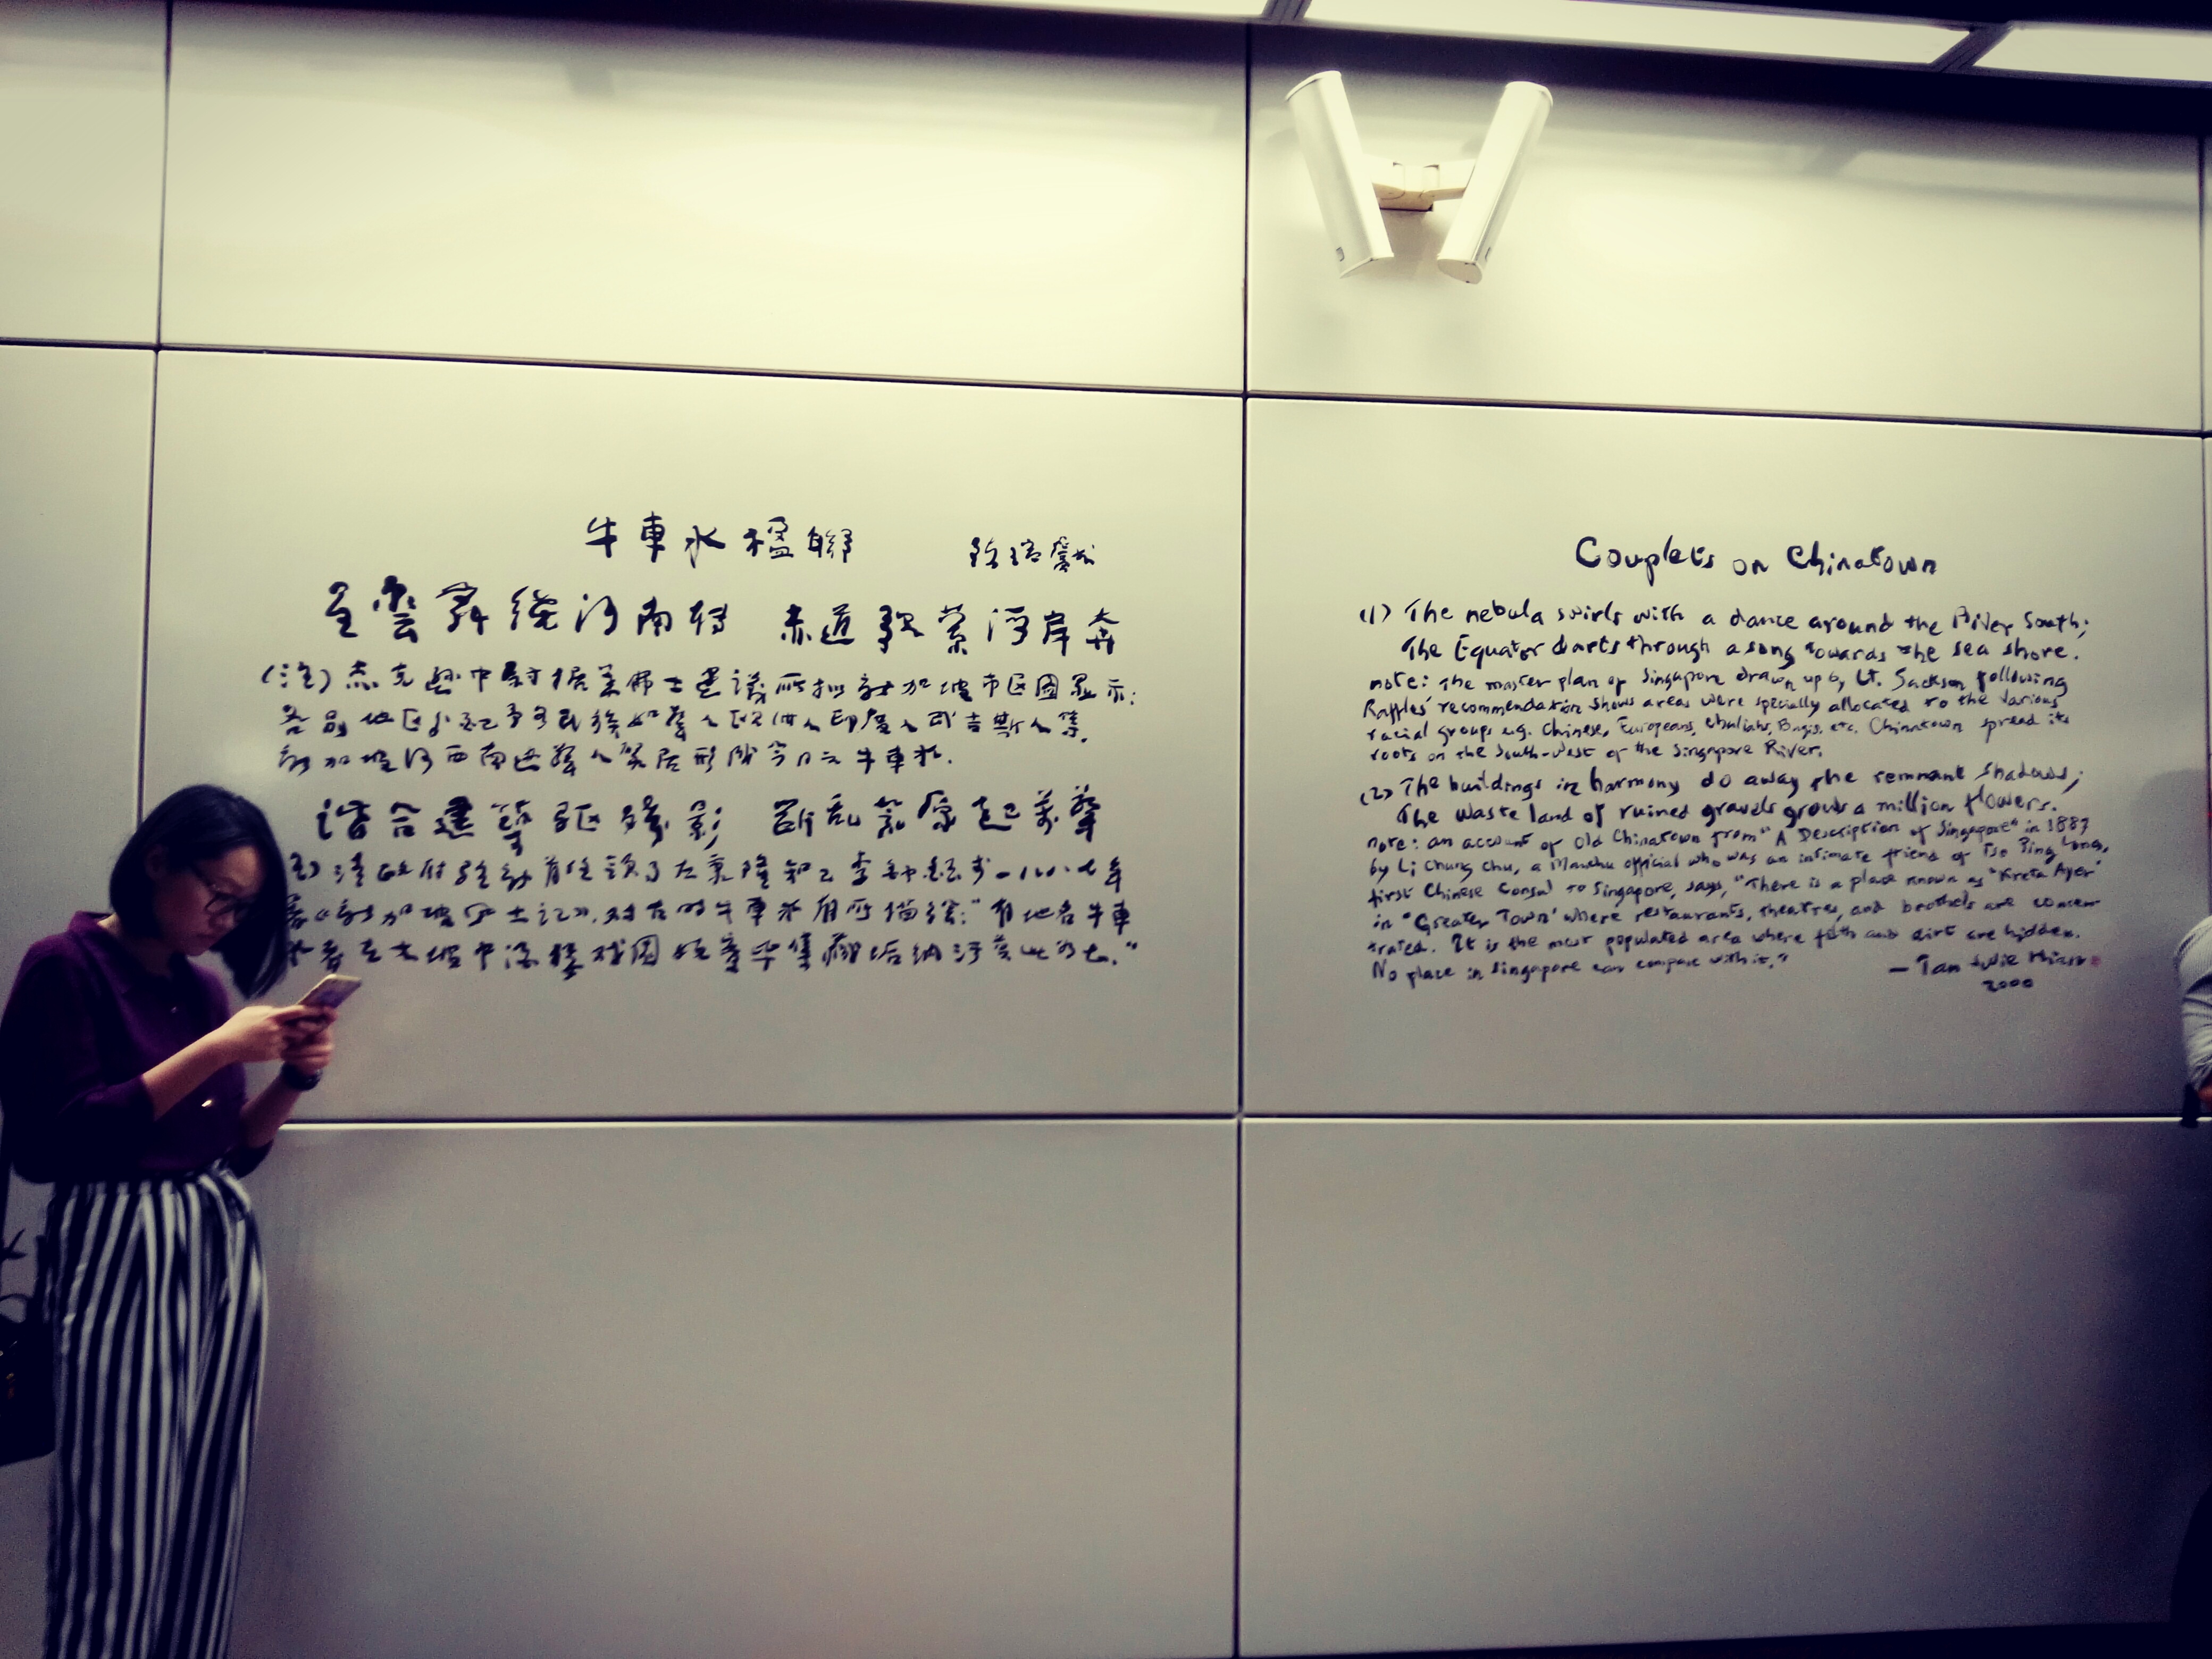 牛車水楹聯
星雲舞繞河南轉 赤道歌縈海岸奔
(注)杰克遜中尉據萊佛士建議所拟新加坡市区图显示:
各别地区分配予各民族如華人欧洲人印度人武吉斯人等.
新加坡河西南边華人聚居形成今日之牛車水.
谐合建築驅殘影 斷乱荒原起萬擎
清政府駐新首任領事左秉隆知己李鍾鈺于一八八七年
著《新加坡风土记》.对古时牛車水有所描繪:"有地名牛車
水者在大坡中 酒樓戏園妓寮毕集藏垢纳污莫此为甚."
Couplets on Chinatown
(1) The nebula swirls with a dance around the River South;
The Equator darts through a song towards the sea shore.
note: The master plan of Singapore drawn up by Lt. Jackson following
Raffles' recommendation shows areas were specially allocated to the various
racial groups e.g. Chinese, Europeans, Chuliahs, Bugis, etc. Chinatown spread its
roots on the South-West of the Singapore River.
(2) The buildings in harmony do away the remnant shadows;
The waste land of ruined gravels grows a million flowers.
note: an account of Old Chinatown from "A Description of Singapore" in 1887
by Li Chung Chu, a Manchu official who was an intimate friend of Tso Ping Long,
first Chinese Consul to Singapore, says, "There is a place known as 'Kreta Ayer'
in 'Greater Town' where restaurants, theatres, and brothels are concen-
trated. It is the most populated area where filth and dirt are hidden.
No place in Singapore can compare with it."
— Tan Swie Hian
2000